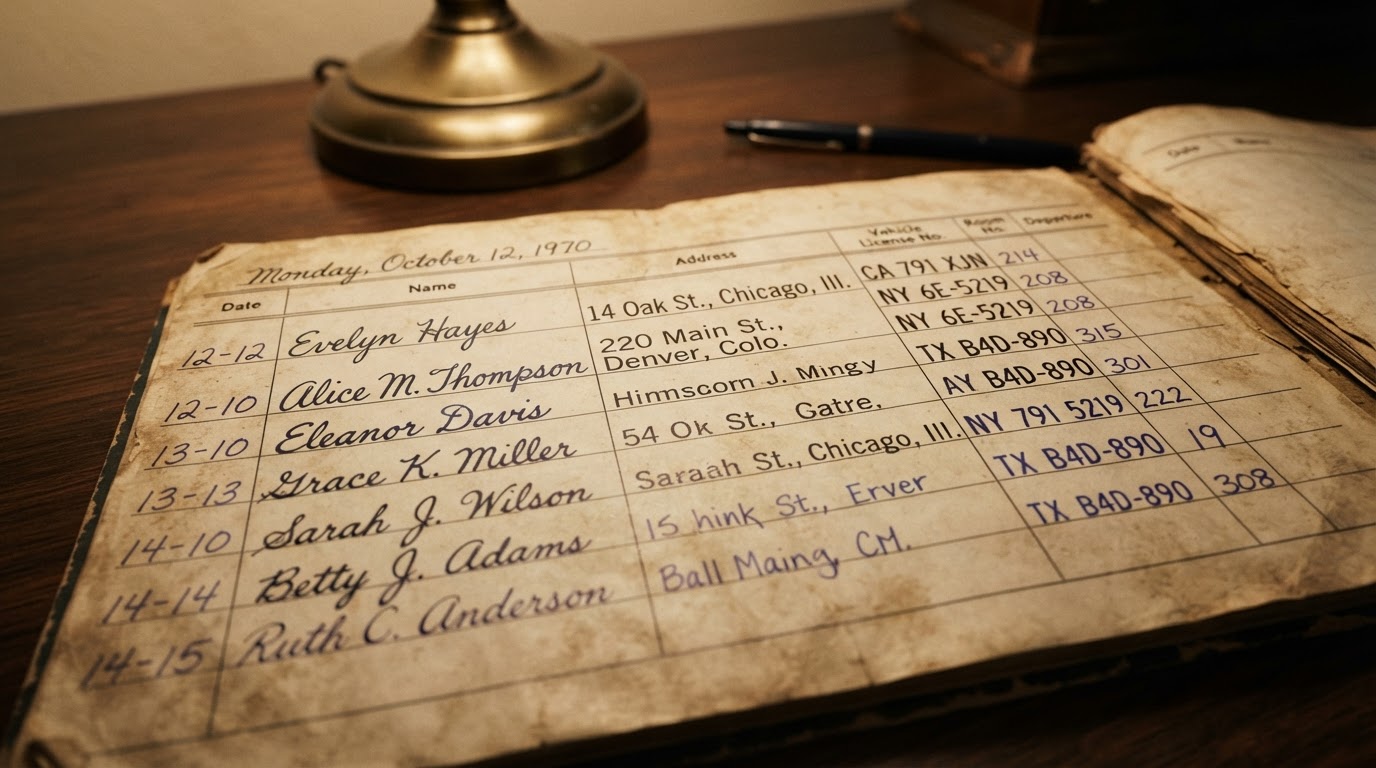 Monday, October 12, 1970
Date Name Address Vehicle License No. Room No. Departure
12-12 Evelyn Hayes 14 Oak St., Chicago, Ill. CA 791 XJN 214
12-10 Alice M. Thompson 220 Main St., Denver, Colo. NY 6E-5219 208
NY 6E-5219 208
13-10 Eleanor Davis Himmscorn J. Mingy TX B4D-890 315
13-13 Grace K. Miller 54 Ok St., Gatre, AY B4D-890 301
14-10 Sarah J. Wilson Saraah St., Chicago, Ill. NY 791 5219 222
14-14 Betty J. Adams 15 hink St., Erver TX B4D-890 19
14-15 Ruth C. Anderson Ball Maing, CM. TX B4D-890 308
Date